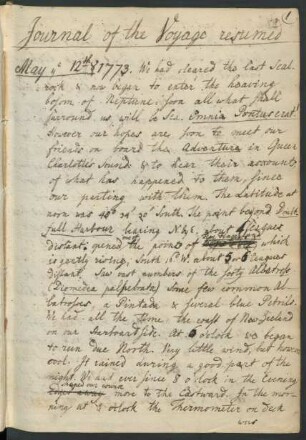 Journal of the Voyage resumed
May ye 12th 1773. We had cleared the last Seal-
rock & now began to enter the heaving
bosom of Neptune. Soon all what shall
surround us, will be Sea. Omnia Pontus erat!
however our hopes are soon to meet our
friends on board the Adventure in Queen
Charlottes Sound & to hear their account
of what has happened to them, since
our parting with them. The Latitude at
noon was 45° 2d 20' South. The point beyond Doubt-
full Harbour bearing N b E. about 6 Leagues
distant; opened the point of which
is gently rising, South W. about 5 or 6 Leagues
distant. Saw vast numbers of the sooty Albatross
(Diomedea palpebrata) some few common Al-
batrosses, a Pintada & several blue Petrels.
We had all the time the coast of New Zeeland
on our Starboard side. At 6 o'clock we began
to run due North. Very little wind, but however
cool. It rained during a good part of the
night. We and ever since 8 o'clock in the Evening
shaped our course more to the Eastward. In the mor-
ning at 8 o'clock the Thermometer on deck
was